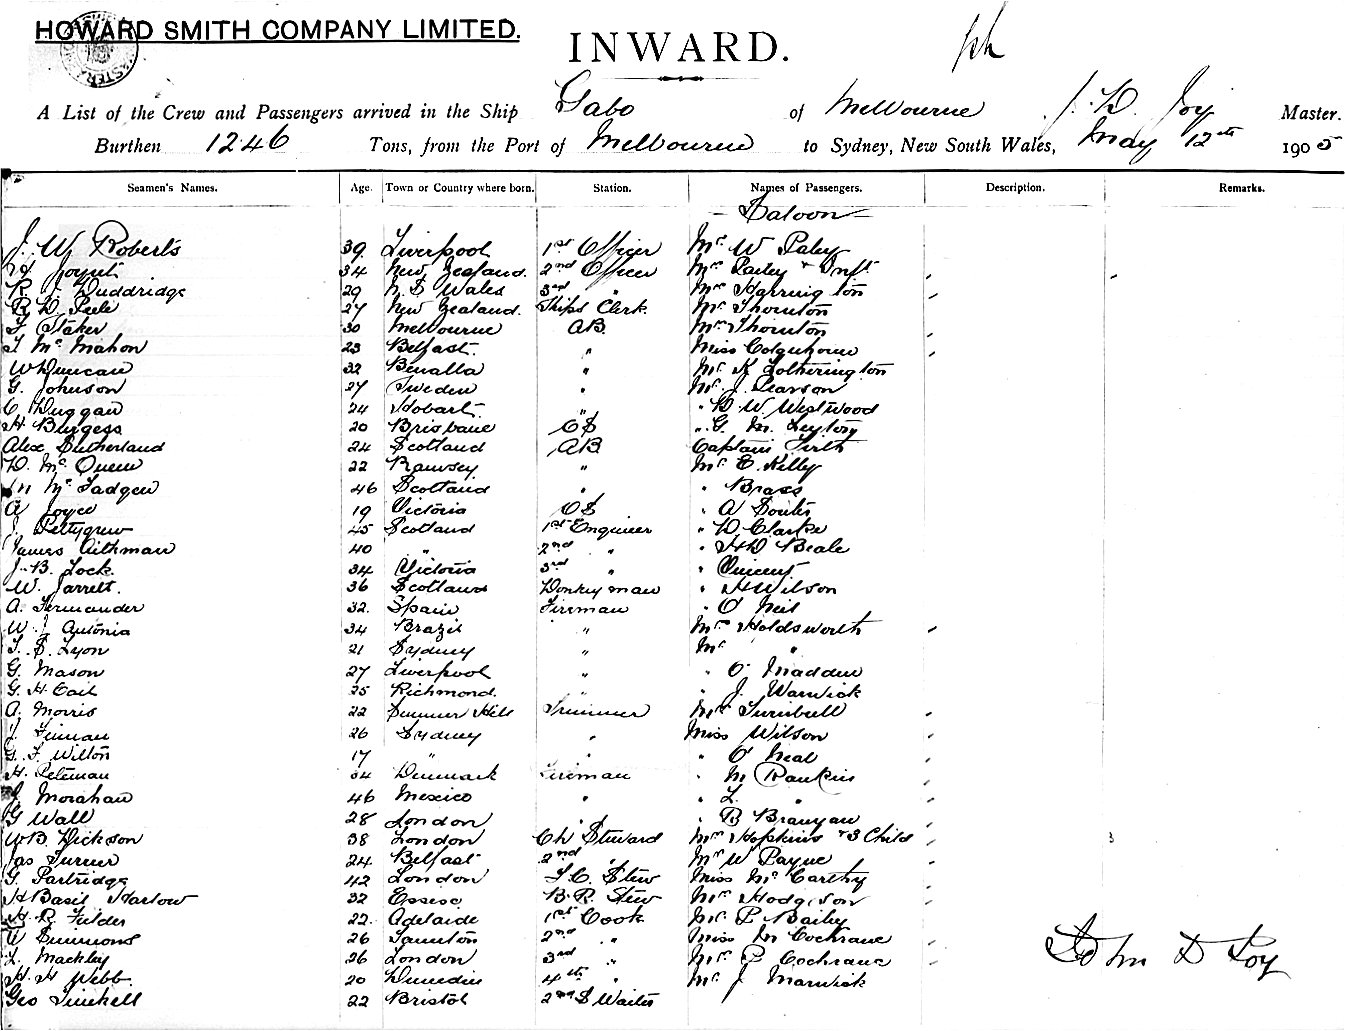 HOWARD SMITH COMPANY LIMITED.
INWARD.
A List of the Crew and Passengers arrived in the Ship Gabo of Melbourne J. D. Joy Master.
Burthen 1246 Tons, from the Port of Melbourne to Sydney, New South Wales, May 12th 1905
Seamen's Names. Age. Town or Country where born. Station. Names of Passengers. Description. Remarks.
Saloon
J. W. Roberts 39 Liverpool 1st Officer Mr W Paley
34 New Zealand. 2nd Officer Mrs Pailey + Inft
R J Duddridge 29 N. S Wales 3rd " Mrs Harrington
R D Peele 27 New Zealand. Ships Clerk. Mr Thornton
F Staker 30 Melbourne AB. Mrs Thornton
T McMahon 23 Belfast. " Miss Colquhoun
W Duncan 32 Benalla " Mr K Lotherington
G. Johnson 27 Sweden " Mr J. Pearson
C Duggan 24 Hobart. " " D. W. Westwood
H Burgess 20 Brisbane OS " G. M. Leyton
Alex Sutherland 24 Scotland AB Captain Firth
D. McQueen 22 Ramsey " Mr E. Kelly
McFadgen 46 Scotland " " Brass
A Joyce 19 Victoria OS " A Souter
J. Pettygrew 45 Scotland 1st Engineer " D Clarke
James Aithman 40 " 2nd " " H D Beale
J. B. Lock. 34 Victoria 3rd " " Vincent
W. Jarrett. 36 Scotland Donkeyman " H Wilson
A. Fernander 32. Spain Fireman " O'Neil
W. J Antonia 34 Brazil " Mrs Holdsworth
T. S. Lyon 21 Sydney " Mr "
G. Mason 27 Liverpool " " O'Madden
G. H. Cail 25 Richmond. " " J. Warwick
A. Morris 22 Summer Hill Trimmer Mrs Turnbull
J. 26 Sydney " Miss Wilson
G. F. Wilton 17 " " " O'Neal
H. Peteman 34 Denmark Fireman " M Rankin
J Morahan 46 Mexico " " L. "
G Wall 28 London " " B Branyan
W B. Dickson 38 London Ch Steward Mrs Hopkins + 3 Child 3
Jas Turner 24 Belfast 2nd " Mrs W Payne
G. Partridge 42 London S. C. Stew Miss McCarthy
H Basil Harlow 32 Essex B. R. Stew Mrs Hodgson
H. R. Fielder 22. Adelaide 1st Cook Mr P Bailey
W Simmons 26 Taunton 2nd " Miss M Cochrane
L. Mackley 26 London 3rd " Mrs P Cochrane
H. H Webb 20 Dunedin 4th " Mr J Marwick
Geo 22 Bristol 2nd S Waiter
John D Joy